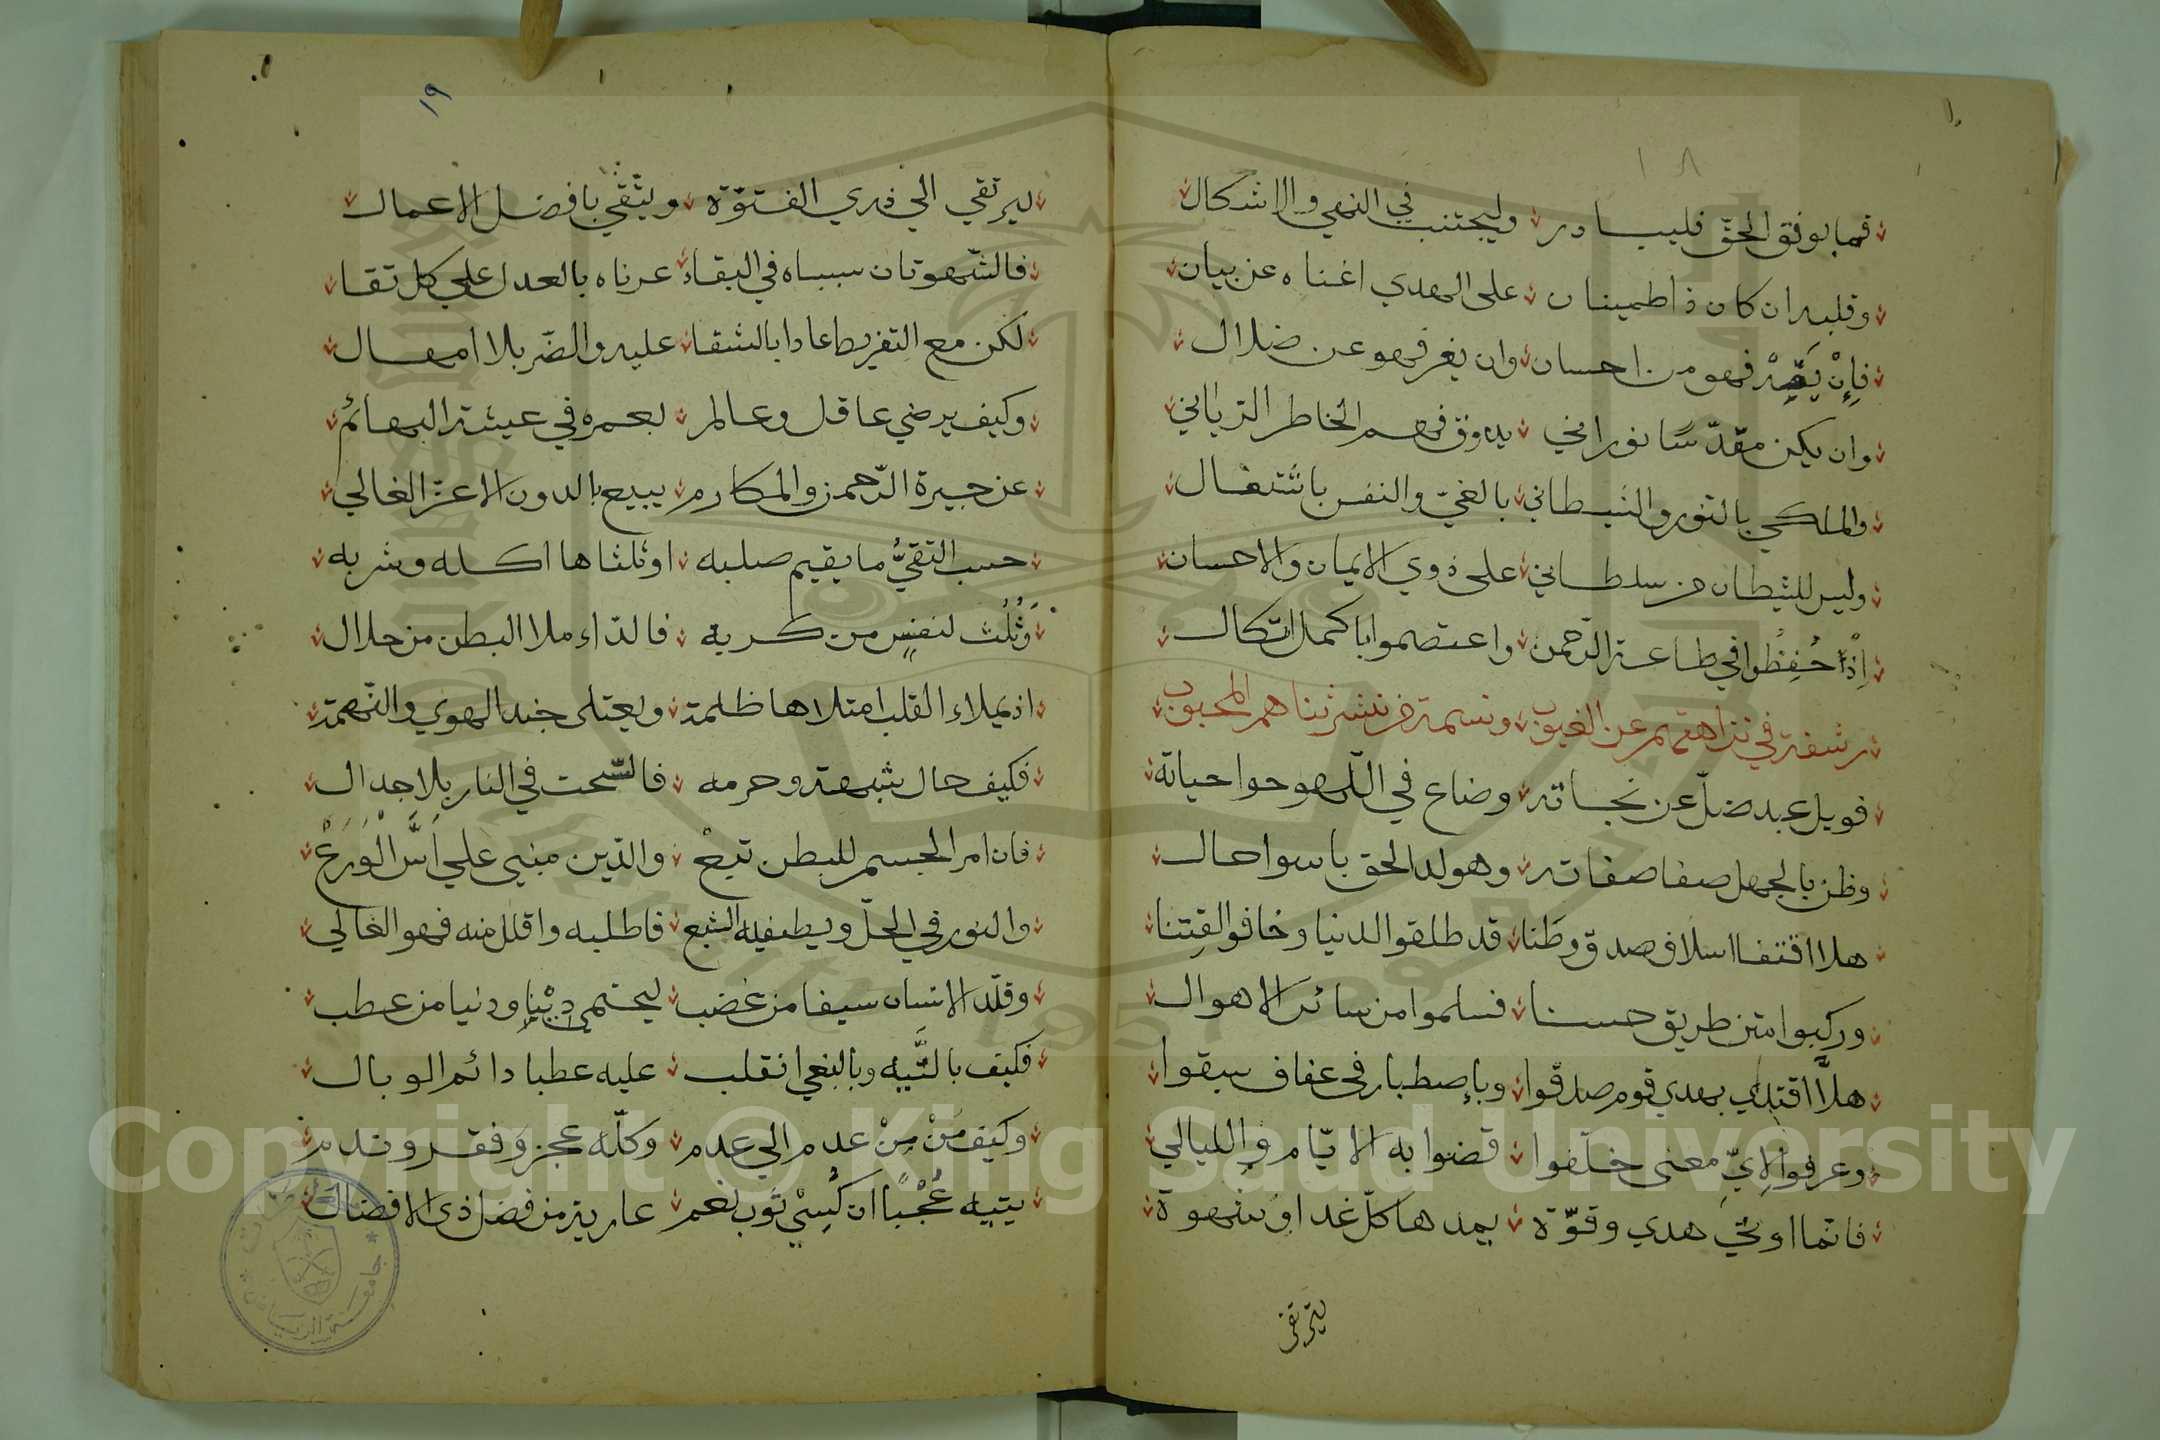 ١٨
فما يوفق الحق فليبادر وليجتنب في النهي والاشكال
وقلبه ان كان ذا طمينان على الهدي اغناه عن بيان
فإن فهو من احسان وان يغر فهو عن ضلال
وان يكن مقدسًا نوراني يذوق فهم الخاطر الرباني
والملكي بالنور والشيطاني بالغيّ والنفس باشتغال
وليس للشيطان من سلطاني على ذوي الايمان والاحسان
إذْ حُفِظُوا في طاعة الرّحمن واعتصموا باكمل اتكال
رشفة في نزاهتهم عن العيوب ونسمة من نشر ثناهم المحبوب
فويل عبد ضلّ عن نجاته وضاع في اللّهو حوا حياته
وظن بالجهل صفا صفاته وهو لدا الحق باسوا حال
هلا اقتفا اسلاف صدق وطَنا قد طلقوا الدنيا وخافوا الفِتنا
وركبوا متن طريق حسنا فسلموا من سائر الاهوال
هلاَّ اقتدي بهدي قوم صدقوا وبإصطبار في عفاف سبقوا
وعرفوا لايِّ معنى خلّفوا قضوا به الايّام والليالي
فانما اوتي هدي وقوّة يمدها كلّ غدا وشهوة
يترتقى
١٩
ليرتقي الي ذري الفتوّة ويتّقي بافضل الاعمال
فالشّهوتان سبباه في البقاء عرناه بالعدل علي كل تقا
لكن مع التفريط عادا بالشقا عليه والضّر بلا امهال
وكيف يرضي عاقل وعالم بعمره في عيشة البهائم
عن جيرة الرّحمن والمكارم يبيع بالدون الاعزّ الغالي
حسب التقيُّ ما يقيم صلبه او ثلثاها اكله وشربه
وَثُلُث لنفسٍ من كربه فالدّاء ملا البطن من حلال
اذ يملاء القلب امتلاها ظلمة ويعتلى جند الهوي والنّهمة
فكيف حال شبهة وحرمه فالسّحت في النار بلا جدال
فان امر الجسم للبطن تبعْ والدّين مبني علي اسّ الْوَرَعْ
والنور في الحلّ ويطفيه الشبع فاطلبه واقلل منه فهو الغالي
وقلّد الانسان سيفا من غضب ليحتمي دِيْنا ودنيا من عطب
فكيف بالتِّيه وبالبغي انقلب عليه عطبا دائم الوبال
وكيف مَنْ مِنْ عدم الي عدم وكلّه عجز وفقر وندم
يتيه عُجْبًا ان كُسِيْ ثوب نعم عارية من فضل ذي الافضال
جامعة الرياض
Copyright © King Saud University
1957